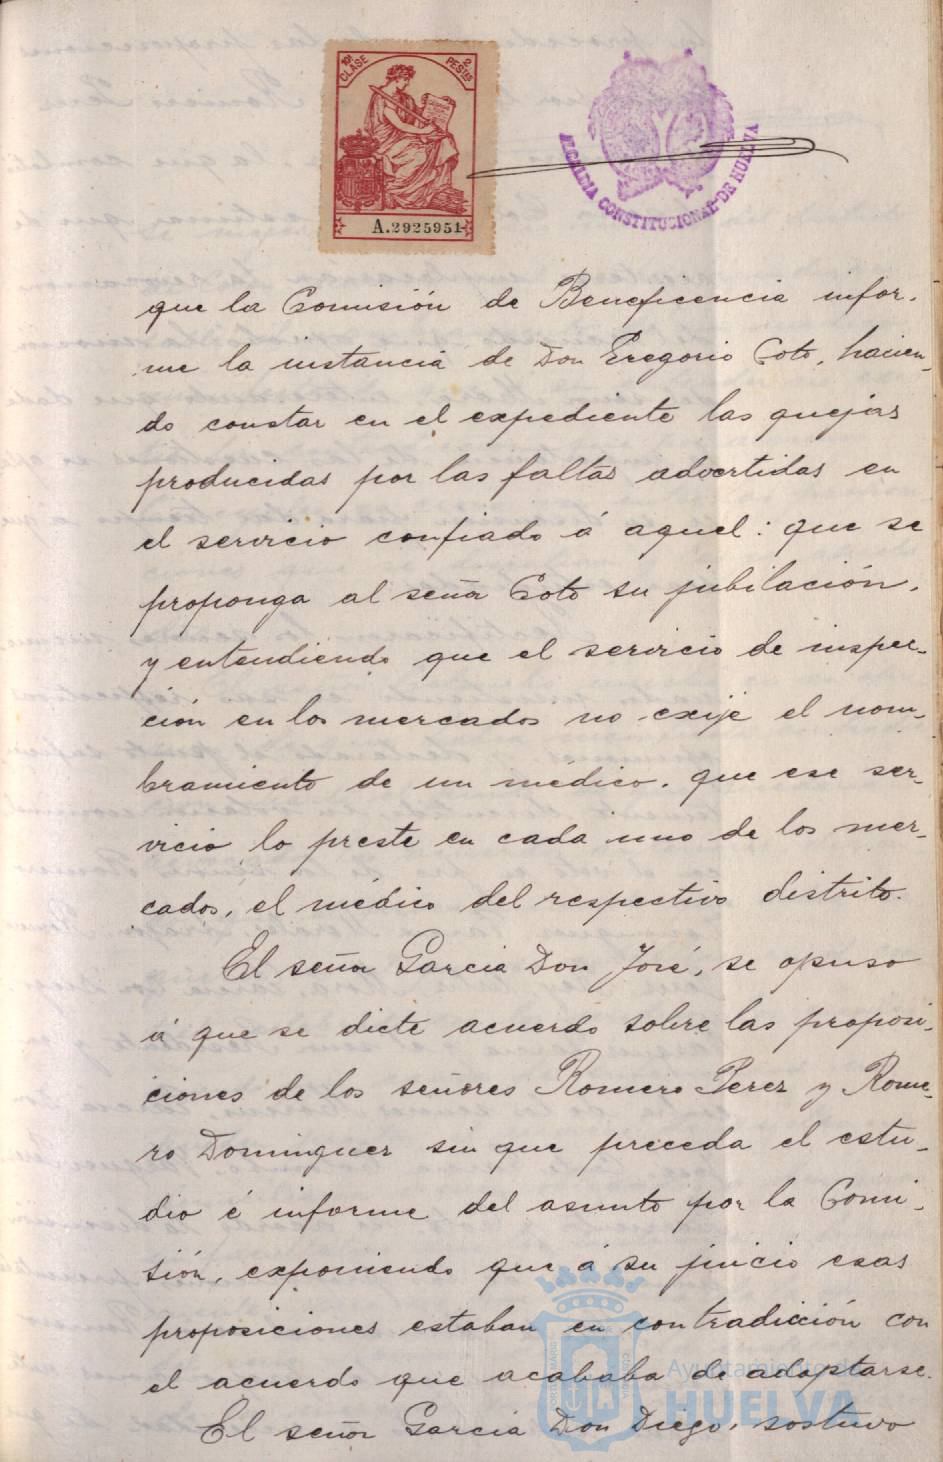 10ª CLASE 2 PESTAS
A.2925951
ALCALDIA CONSTITUCIONAL DE HUELVA
que la Comisión de Beneficencia infor-
me la instancia de Don Gregorio Coto, hacien-
do constar en el expediente las quejas
producidas por las faltas advertidas en
el servicio confiado á aquel: que se
proponga al señor Coto su jubilación,
y entendiendo que el servicio de inspec-
ción en los mercados no exije el nom-
bramiento de un médico, que ese ser-
vicio lo preste en cada uno de los mer-
cados, el médico del respectivo distrito.
El señor Garcia Don José, se opuso
á que se dicte acuerdo sobre las proposi-
ciones de los señores Romero Perez y Rome-
ro Dominguez sin que preceda el estu-
dio é informe del asunto por la Comi-
sión, exponiendo que á su juicio esas
proposiciones estaban en contradicción con
el acuerdo que acababa de adoptarse.
El señor Garcia Don Diego, sostuvo
Ayuntamiento de
HUELVA